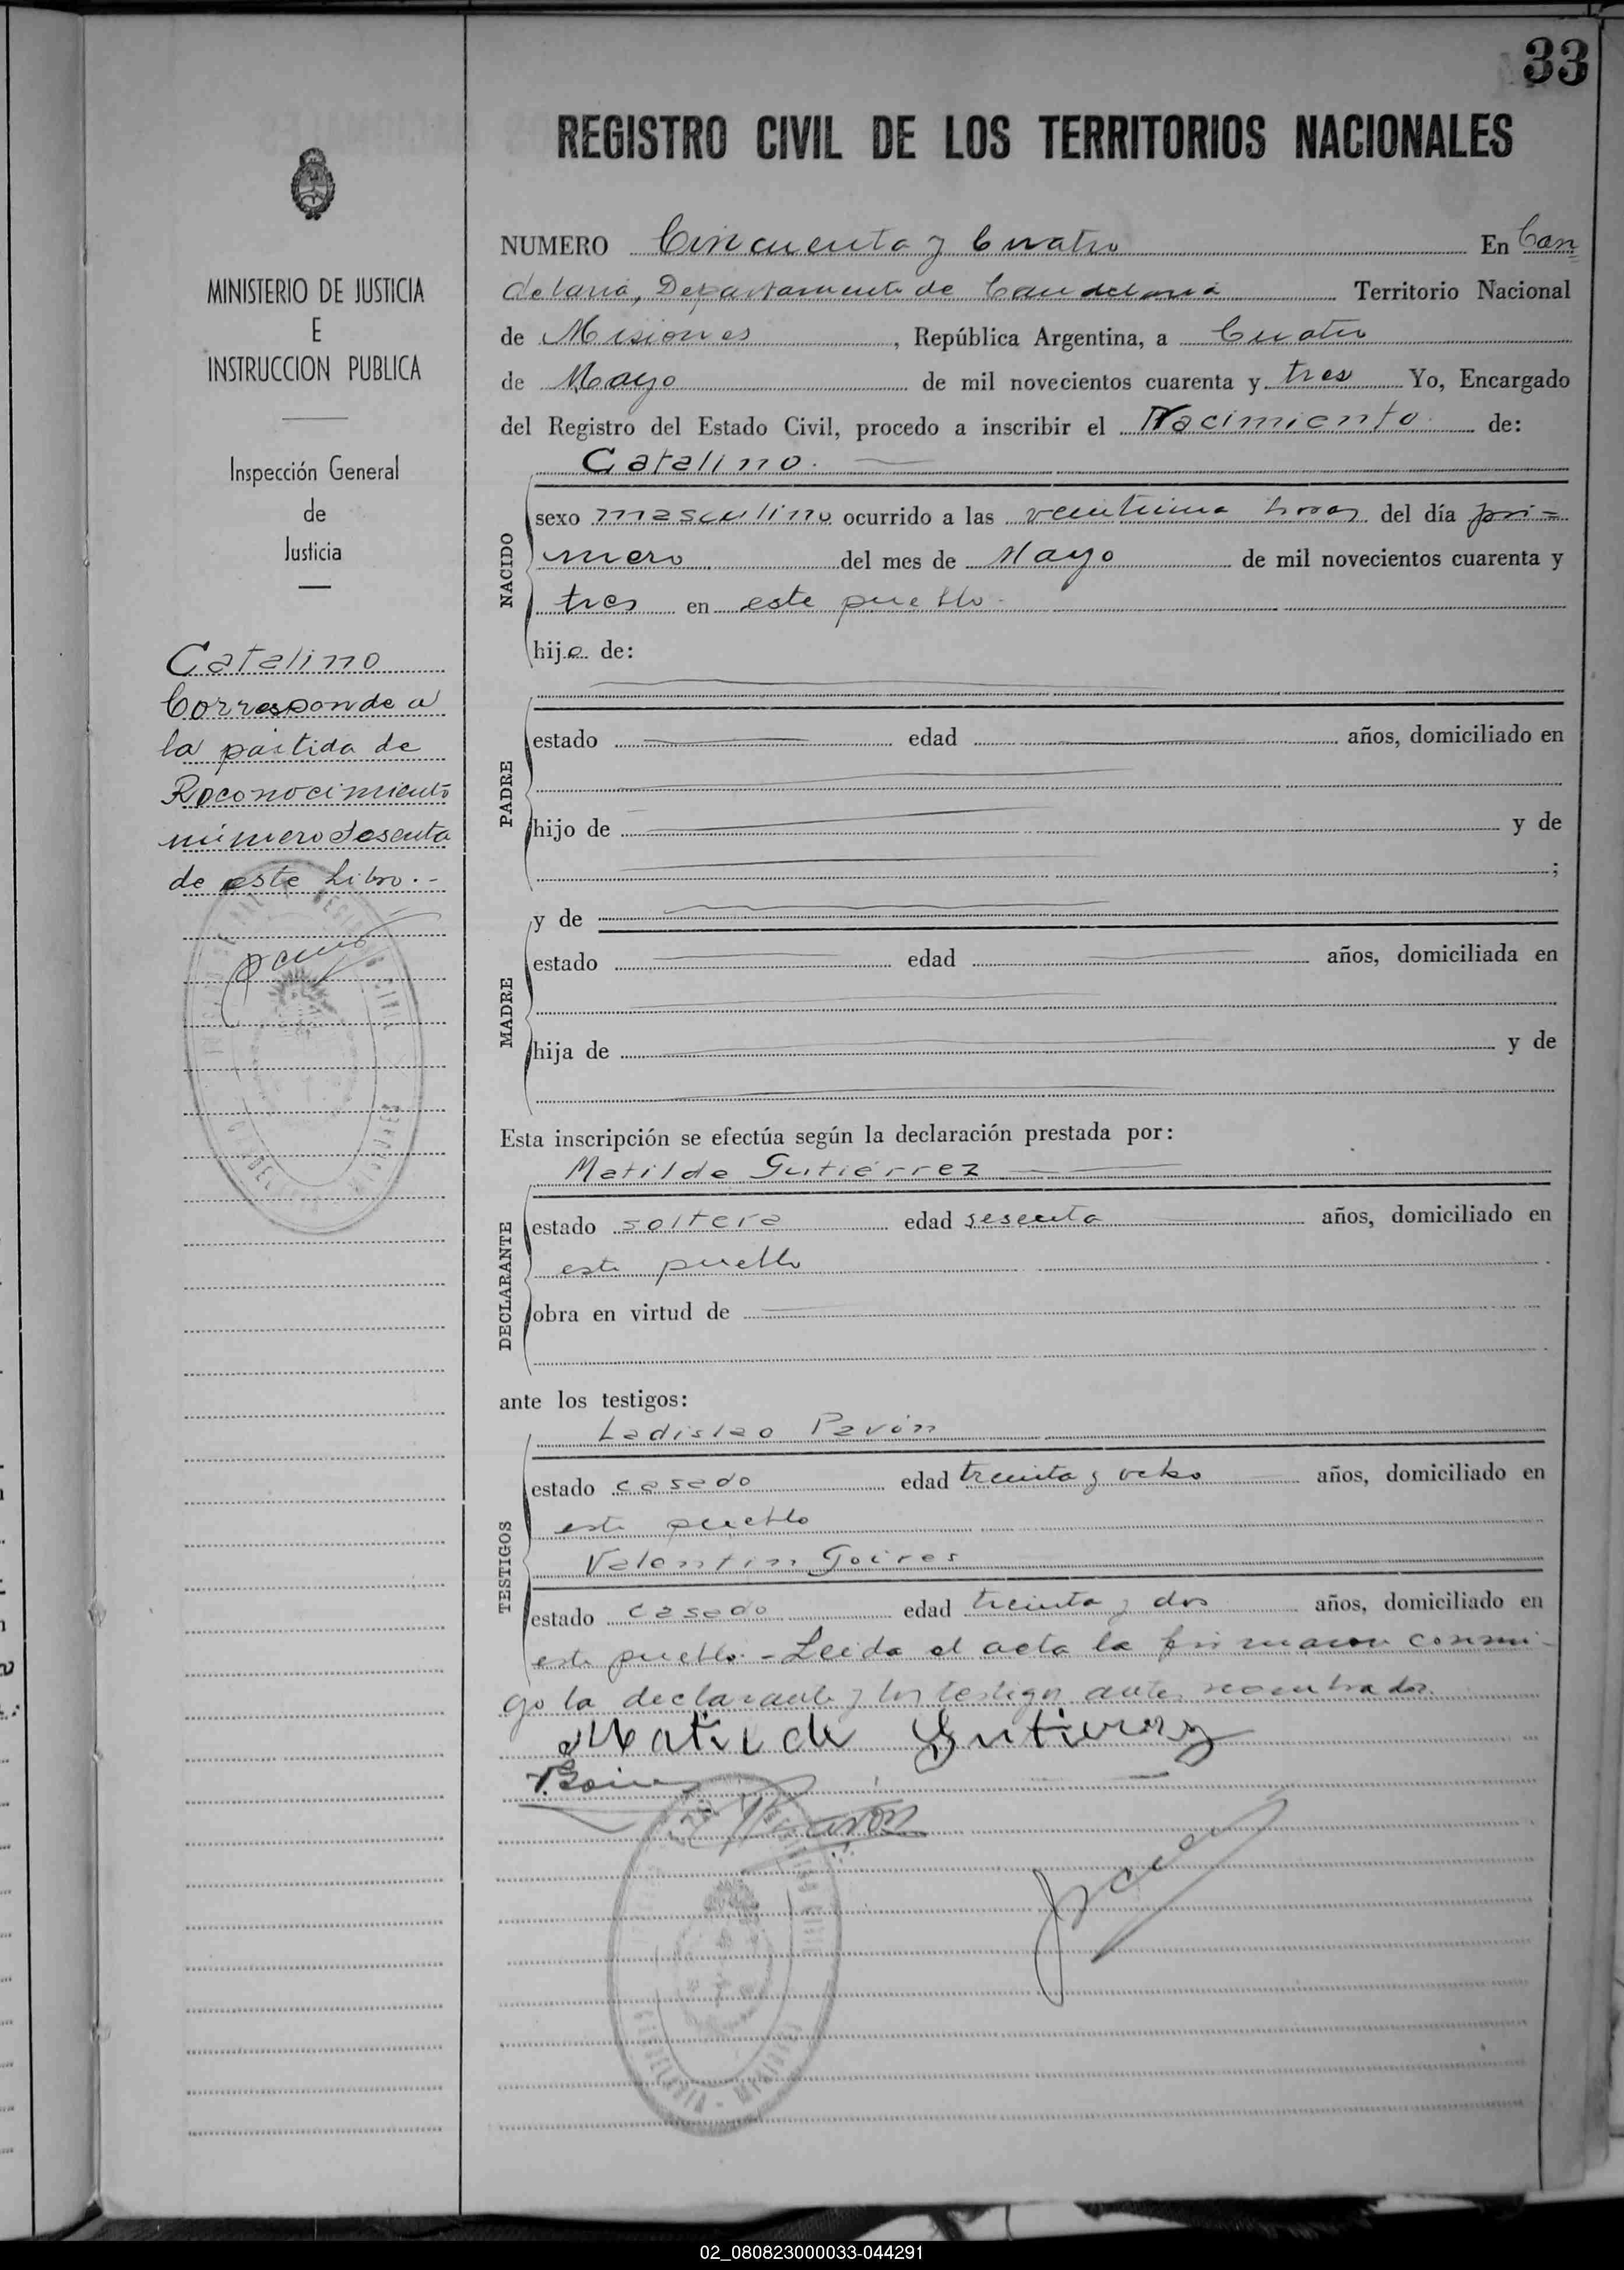 33
REGISTRO CIVIL DE LOS TERRITORIOS NACIONALES
MINISTERIO DE JUSTICIA
E
INSTRUCCION PUBLICA
Inspección General
de
Justicia
Catalino
Corresponde a
la partida de
Reconocimiento
número Sesenta
de este Libro.-
NUMERO Cincuenta y Cuatro En Can
delaria, Departamento de Candelaria Territorio Nacional
de Misiones, República Argentina, a Cuatro
de Mayo de mil novecientos cuarenta y tres Yo, Encargado
del Registro del Estado Civil, procedo a inscribir el Nacimiento de:
Catalino.
NACIDO
sexo masculino ocurrido a las veintiuna horas del día pri=
mero del mes de Mayo de mil novecientos cuarenta y
tres en este pueblo-
hijo de:
PADRE
estado edad años, domiciliado en
hijo de y de
;
MADRE
y de
estado edad años, domiciliada en
hija de y de
Esta inscripción se efectúa según la declaración prestada por:
Matilde Gutiérrez
DECLARANTE
estado soltera edad sesenta años, domiciliado en
este pueblo
obra en virtud de
ante los testigos:
TESTIGOS
Ladislao Pavón
estado casado edad treinta y ocho años, domiciliado en
este pueblo
Valentin Goires
estado casado edad treinta y dos años, domiciliado en
este pueblo.- Leida el acta la firmaron conmi-
go la declarante y los testigos antes nombrados.
Matilde Gutierrez
Pavón
02_080823000033-044291